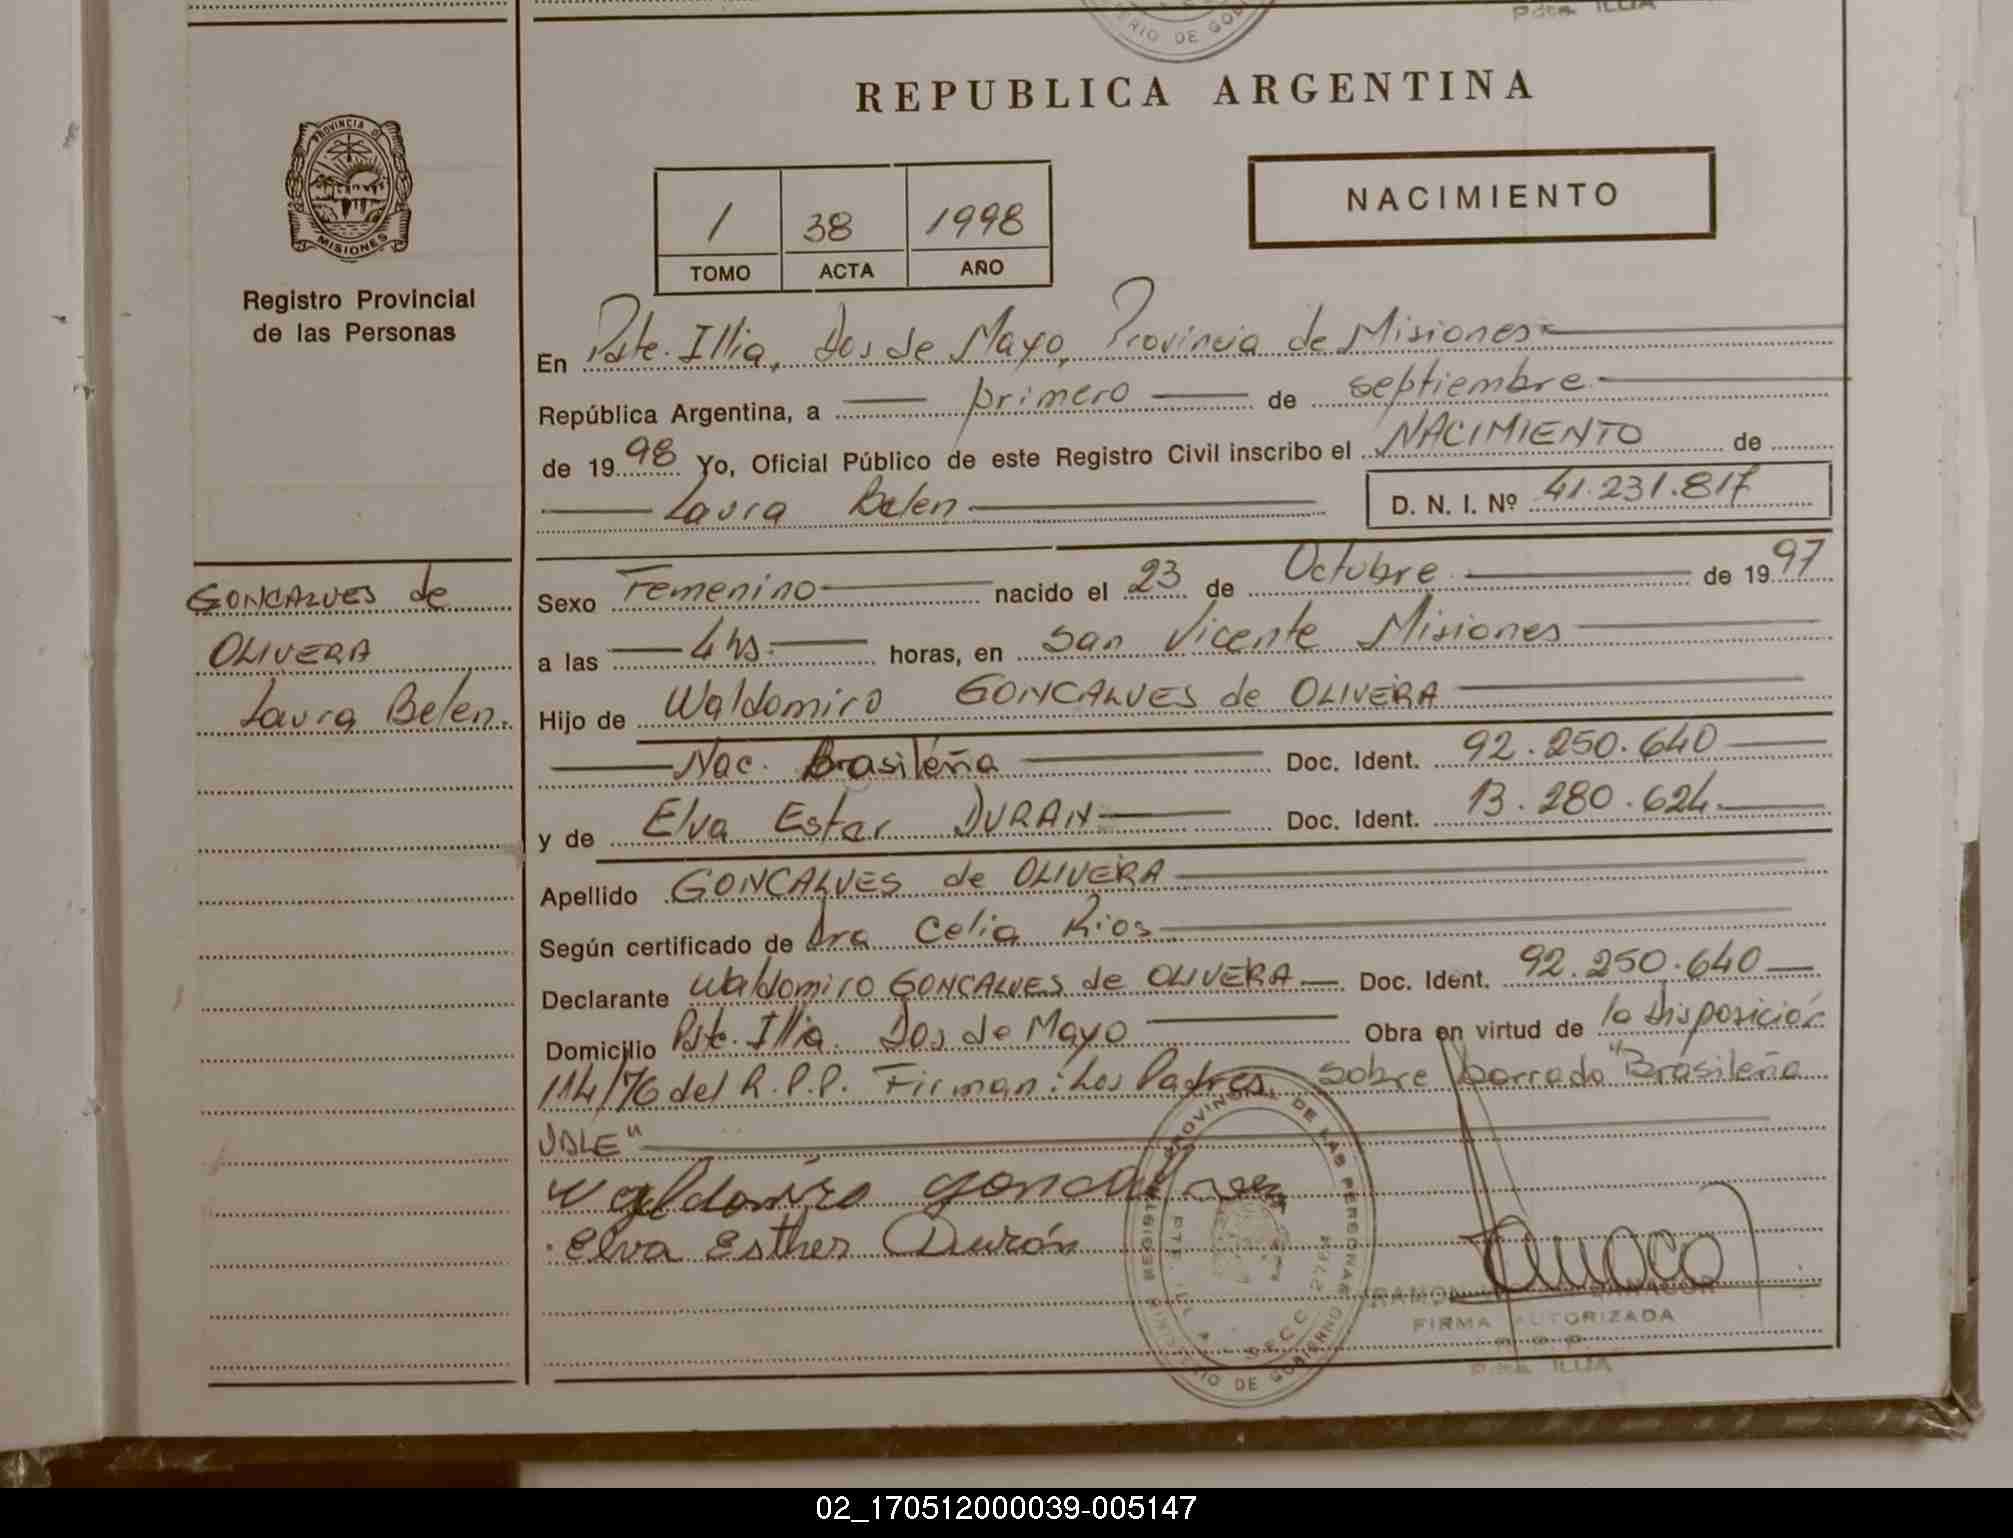 Pdte. ILLIA
ERIO DE GOBI
REPUBLICA ARGENTINA
PROVINCIA D
MISIONES
Registro Provincial
de las Personas
1 38 1998
TOMO ACTA AÑO
NACIMIENTO
En Pdte. Illia, Dos de Mayo, Provincia de Misiones
República Argentina, a primero de septiembre
de 1998 Yo, Oficial Público de este Registro Civil inscribo el NACIMIENTO de
Laura Belen D. N. I. Nº 41.231.817
GONCALVES de
OLIVERA
Laura Belen.
Sexo Femenino nacido el 23 de Octubre de 1997
a las 4 hs. horas, en San Vicente Misiones
Hijo de Waldomiro GONCALVES de OLIVERA
Nac. Brasileña Doc. Ident. 92.250.640
y de Elva Ester DURAN Doc. Ident. 13.280.624
Apellido GONCALVES de OLIVERA
Según certificado de Dra Celia Rios
Declarante Waldomiro GONCALVES de OLIVERA Doc. Ident. 92.250.640
Domicilio Pdte. Illia. Dos de Mayo Obra en virtud de la Disposición
114/76 del R.P.P. Firman: Los Padres. Sobre borrado "Brasileña
VALE"
Waldomiro goncalves
Elva Esther Durán
REGISTRO PROVINCIAL DE LAS PERSONAS
MINISTERIO DE GOBIERNO
PTE. ILLIA
RAMON
FIRMA AUTORIZADA
Pdte. ILLIA
02_170512000039-005147